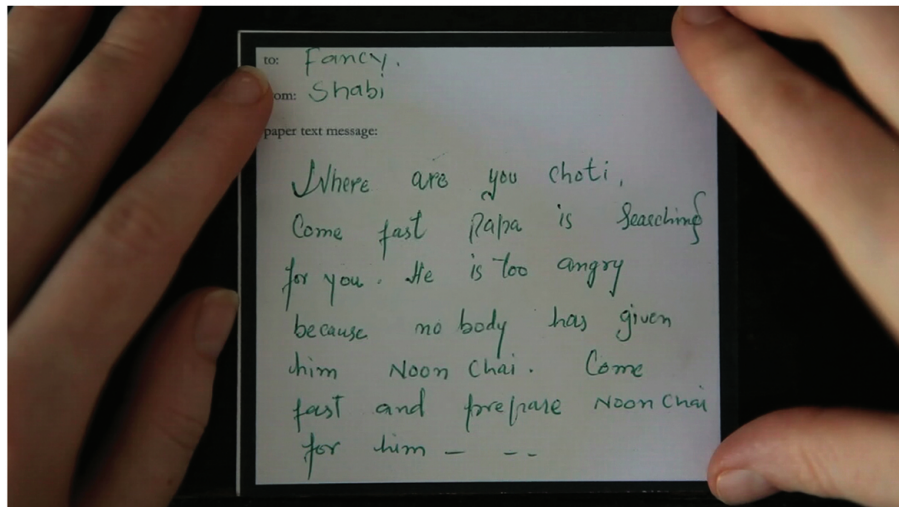 to: Fancy.
om: Shabi
paper text message:
Where are you choti,
Come fast Papa is Searching
for you. He is too angry
because no body has given
him Noon Chai. Come
fast and prepare Noon Chai
for him — - -